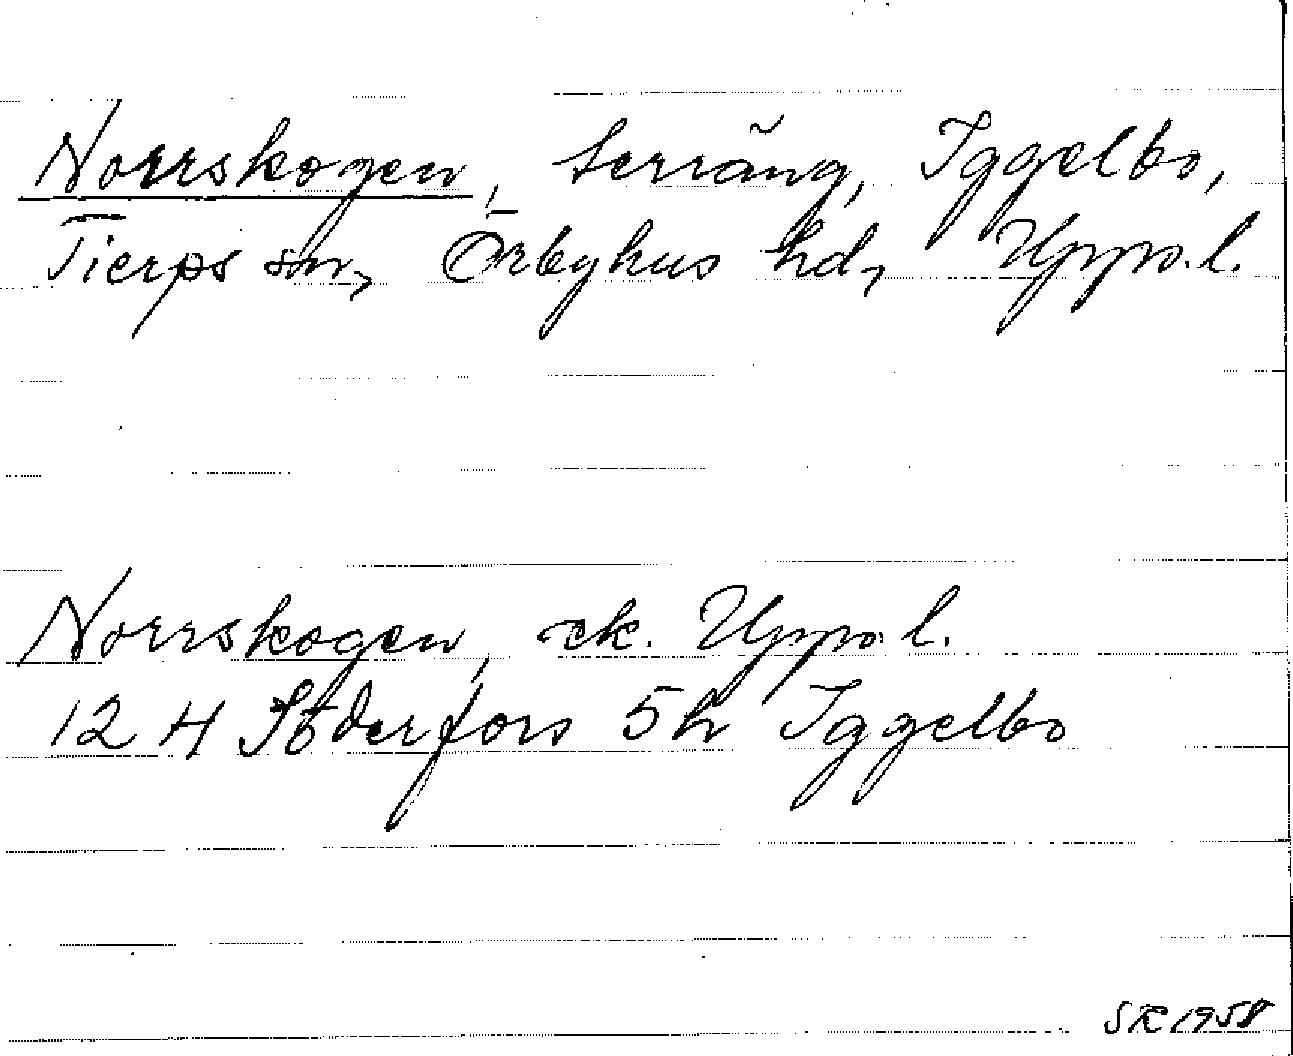 Norrskogen, terräng, Iggelbo,
Tierps sn, Örbyhus hd, Uppo. l.
Norrskogen, ek. Uppo. l.
12 H Söderfors 5h Iggelbo
SR 1958